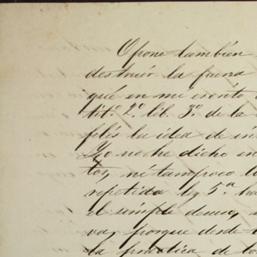 Opone tambien
destruir la fuerza
qué en mi escrito
tit.º 2.º lib. 3.º de la
la idea de in
Yo no he dicho en
tos, ni tampoco l
repetida ley 5.ª ha
el simple
va, porque desde
la práctica de to